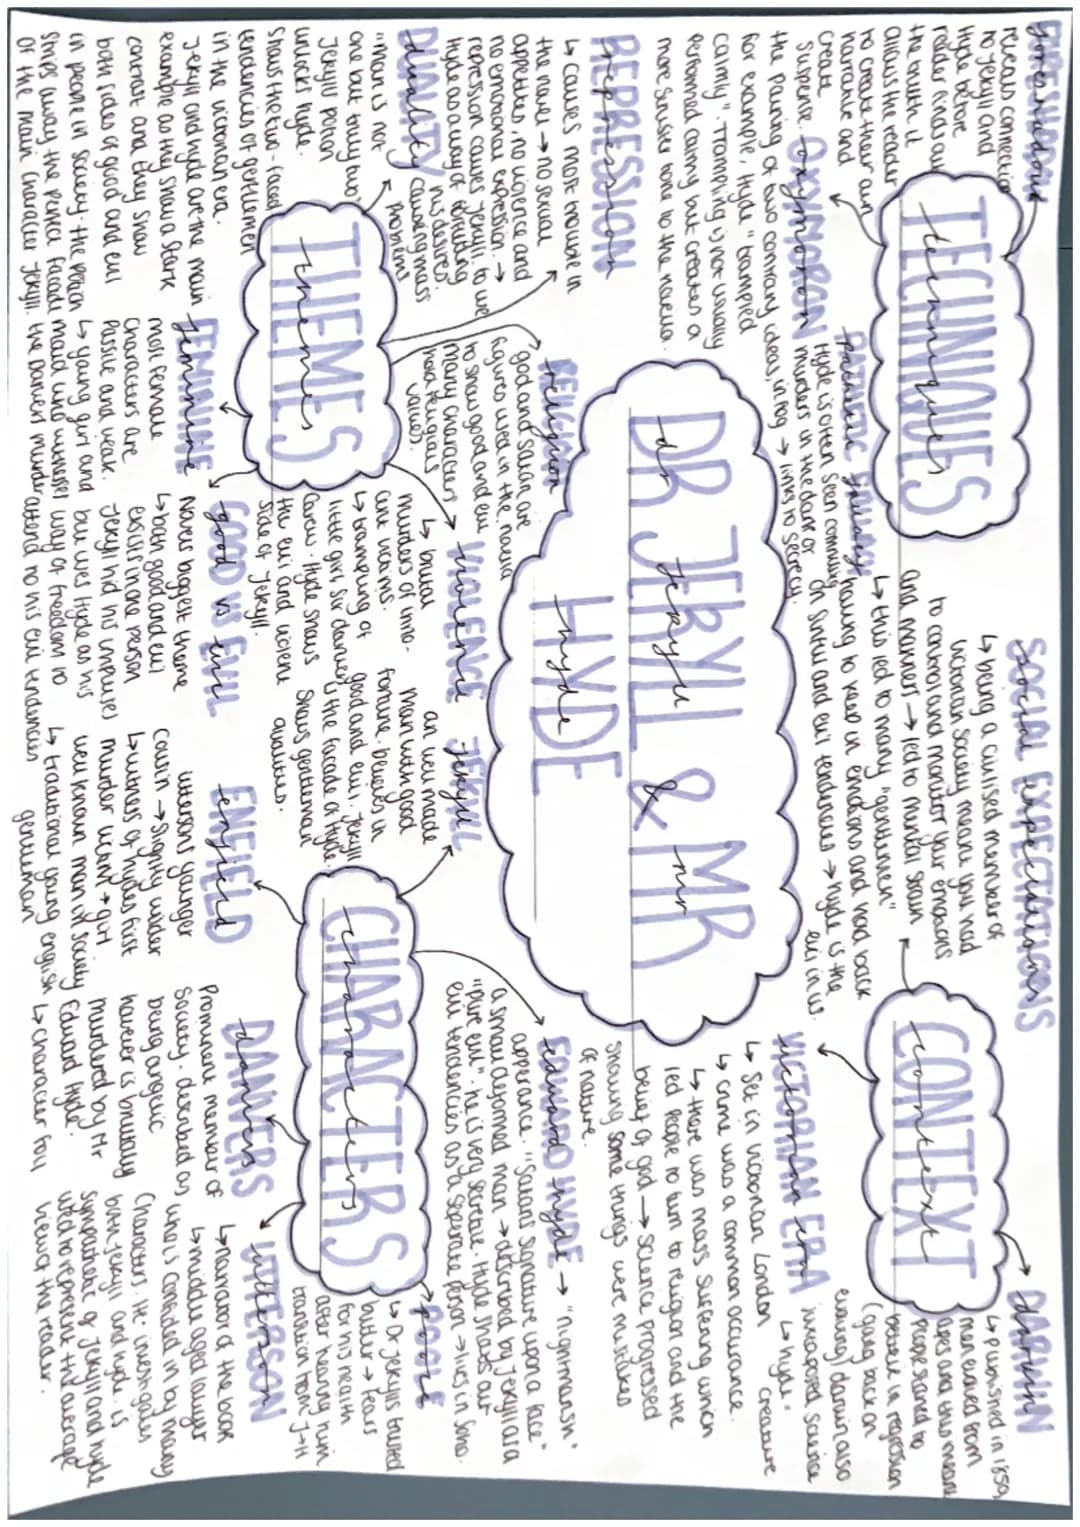 DR JEKYLL & MR
dr Jekyll & mr
HYDE
hyde
TECHNIQUES
techniques
foreshadowing
reveals connection
to Jekyll and
Hyde before
reader finds out
the truth. it
allows the reader
to create their own
narrative and
create
suspense.
OXYMORON
oxymoron
the pairing of two contrary ideas,
for example, Hyde "trampled
calmly". Trampling is not usually
performed calmly but creates a
more sinister tone to the novella.
PATHETIC FALLACY
pathetic fallacy
Hyde is often seen commiting
murders in the dark or
in fog → links to secrecy.
SOCIAL EXPECTATIONS
social expectations
↳ being a civilised member of
victorian society meant you had
to control and monitor your emotions
and manners → led to mental strain
↳ this led to many "gentlemen"
having to keep in emotions and hold back
on sinful and evil tendencies → hyde is the
evil in us.
CONTEXT
context
DARWIN
darwin
↳ published in 1859,
men evolved from
apes and this meant
people started to
believe in regression
(going back on
evolving) darwin also
↳ hyde "creature"
VICTORIAN ERA
victorian era
↳ Set in victorian London
↳ crime was a common occurance.
↳ there was mass suffering which
led people to turn to religion and the
belief of god → science progressed
showing some things were mistakes
of nature.
THEMES
themes
REPRESSION
repression
↳ causes most trouble in
the novel → no sexual
appetites, no violence and
no emotional expression. →
repression causes Jekyll to use
Hyde as a way of fulfilling
his desires.
causing mass
problems
DUALITY
duality
"man is not
one but truly two."
Jekyll potion
unlocks hyde.
Shows the two-faced
tendencies of gentlemen
in the victorian era.
Jekyll and Hyde are the main
example as they show a stark
contrast and they show
both sides of good and evil
in people in society. the potion
strips away the perfect facade
of the main character Jekyll.
RELIGION
religion
god and satan are
figures used in the novella
to show good and evil
many characters
have religious
values.
FEMININE
feminine
most female
characters are
passive and weak.
↳ young girl and
maid who witnesses
the danvers murder
GOOD VS EVIL
good vs evil
Novels biggest theme
↳ both good and evil
exist in one person
Jekyll hid his impurities
but uses Hyde as his
way of freedom to
attend to his evil tendencies
VIOLENCE
violence
↳ brutal
murders of inno-
cent victims.
↳ trampling of
little girl, sir danvers
carew. Hyde shows
the evil and violent
side of Jekyll.
CHARACTERS
characters
JEKYLL
Jekyll
an well made
man with good
fortune. believes in
good and evil. Jekyll
is the facade of Hyde.
Shows gentleman
qualities.
ENFIELD
enfield
utterons younger
cousin → slightly wilder
↳ witness of hydes first
murder victim → girl
well known man in society
↳ traditional young english
gentleman
DANVERS
danvers
prominent member of
society. described as
being angelic
however is brutally
murdered by Mr
Edward Hyde.
UTTERSON
utterson
↳ narrator of the book
↳ middle aged lawyer
who is confided in by many
characters. He investigates
both Jekyll and Hyde. is
sympathetic of Jekyll and Hyde
used to represent the average
view of the reader.
POOLE
poole
↳ Dr Jekylls trusted
butler → fears
for his health
after hearing him
transition from J→H
EDWARD HYDE
edward hyde → "nightmarish"
apperance. "Satans signature upon a face"
a small deformed man → described by Jekyll as a
"pure evil". he is very secretive. Hyde shows our
evil tendencies as a seperate person → lives in Soho.